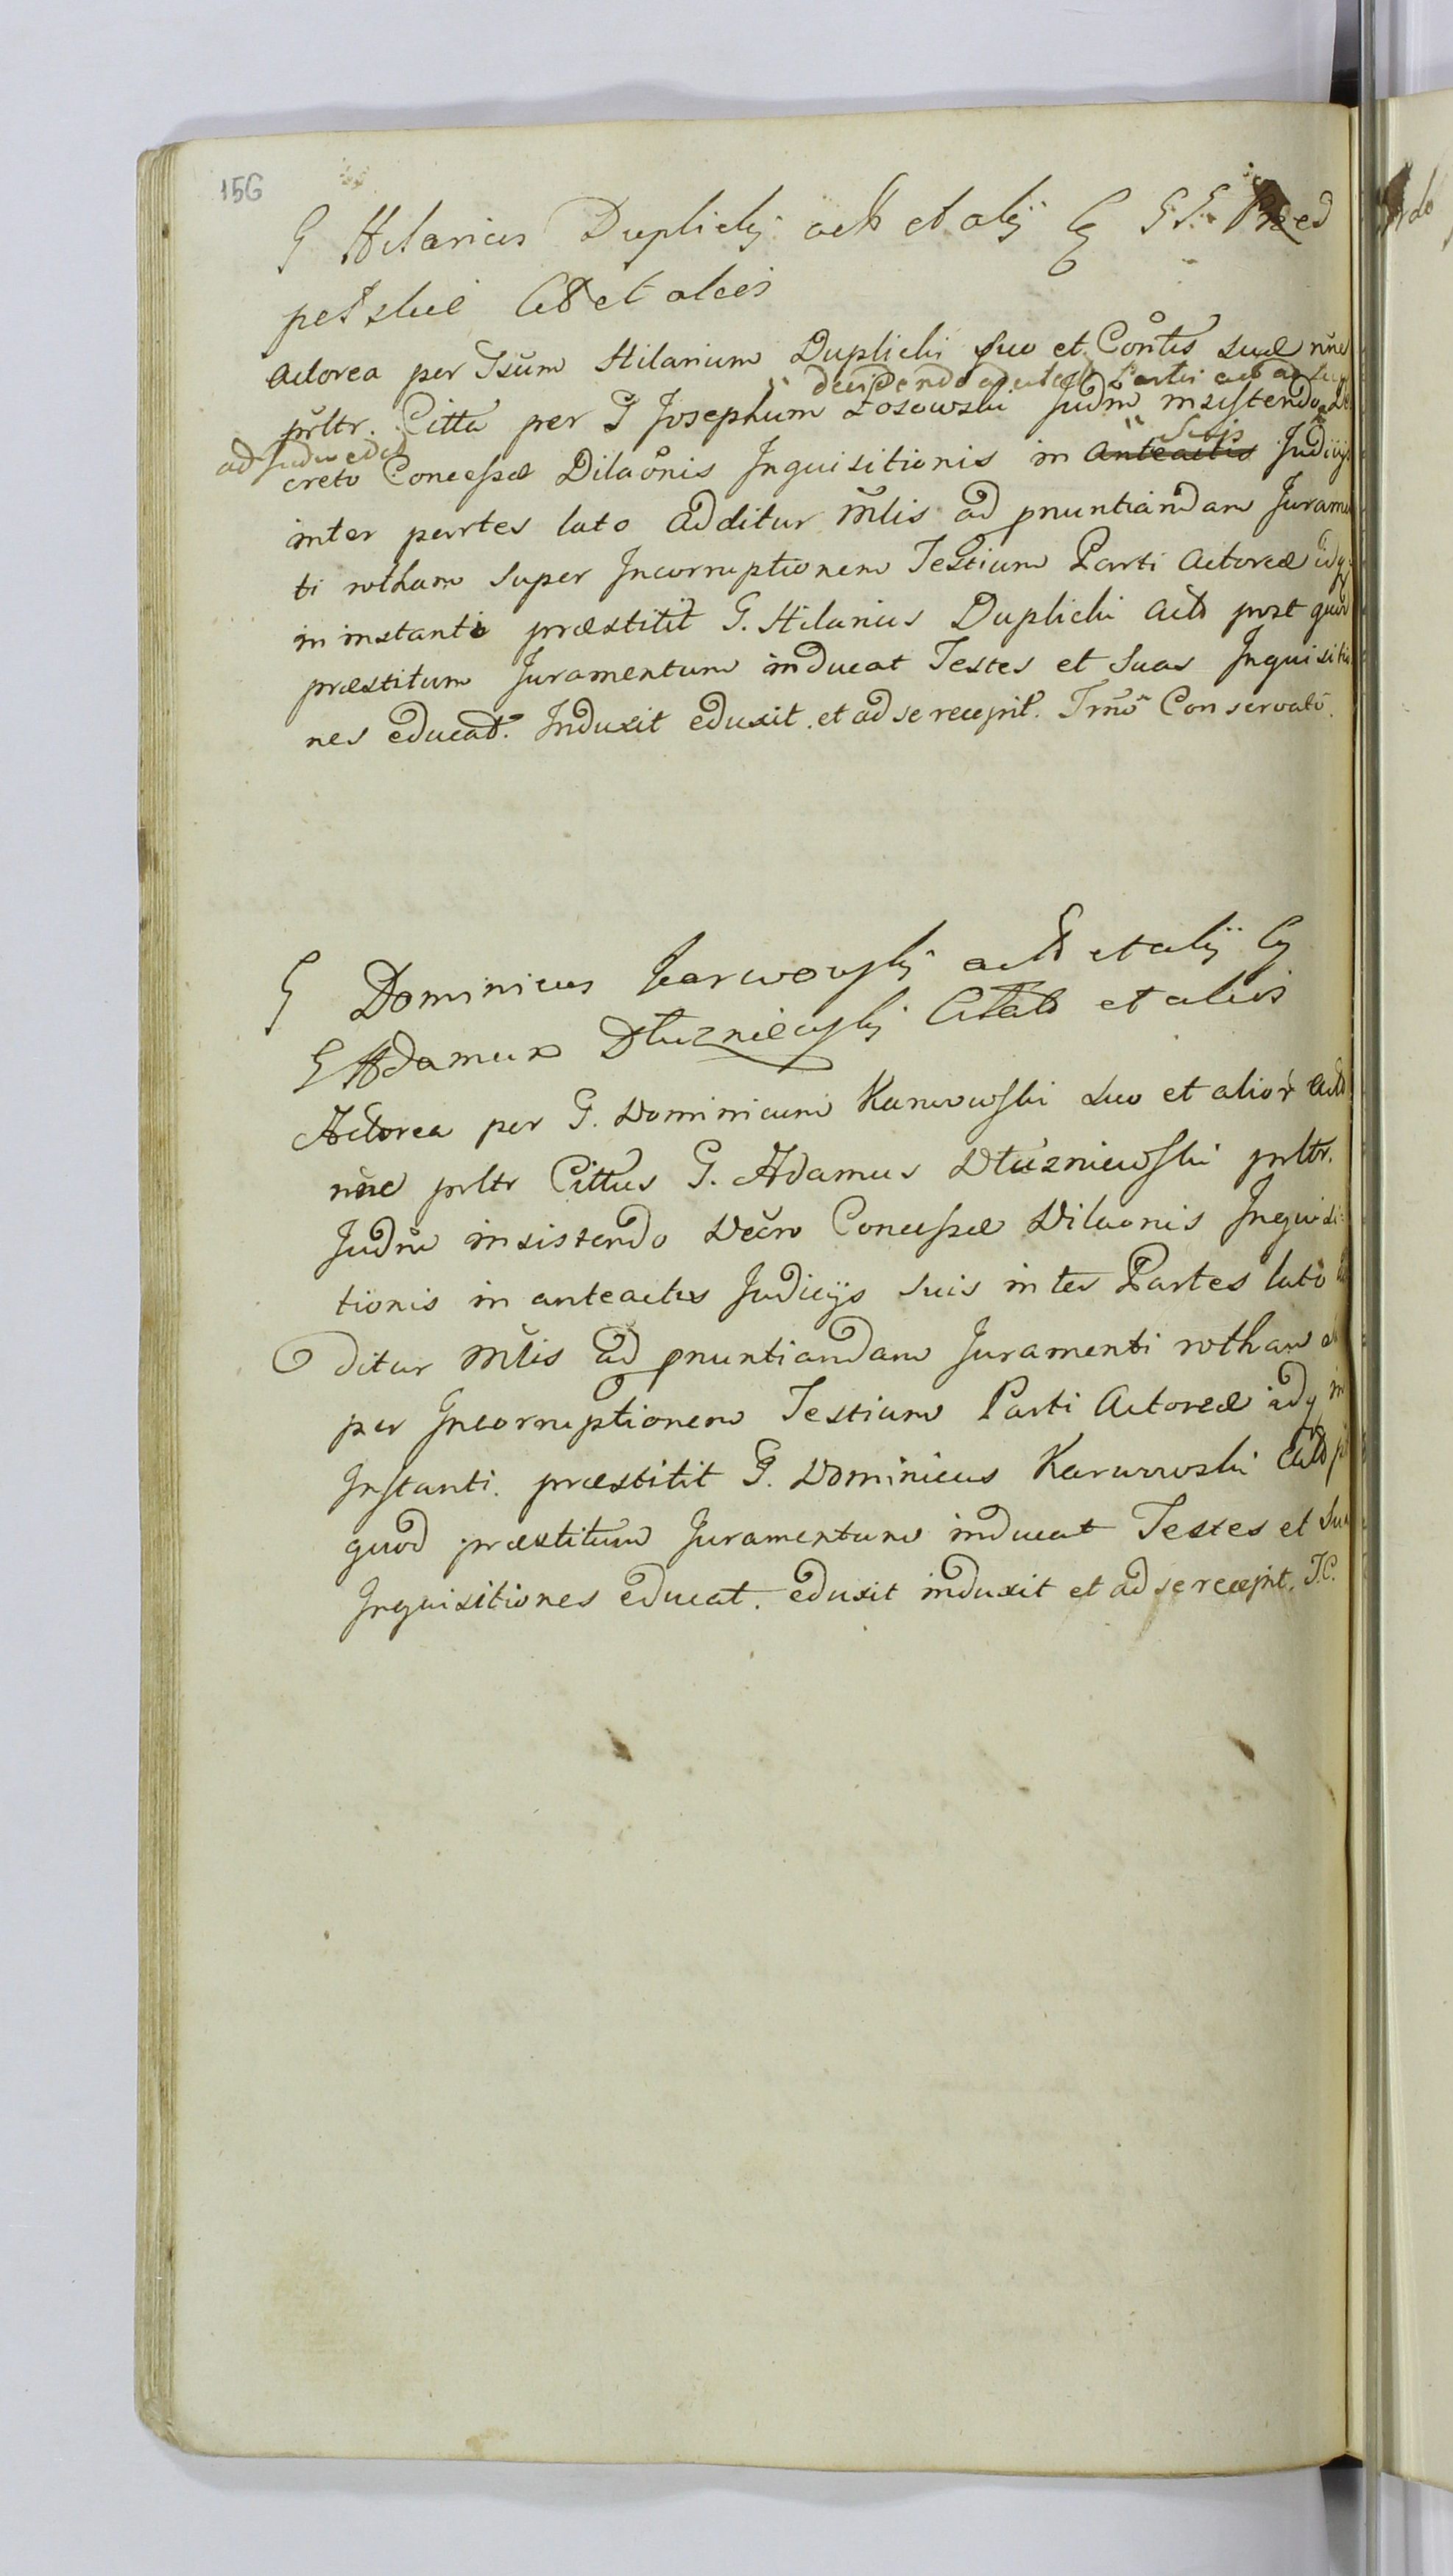 156
G Hilarius Duplicky act et alij Cg GG
petskie Ctt et aliis
Actorea per Gsum Hilarium Duplicki suo et Contis suæ nũnc
decidendo Partis
prltr. Citta per G Josephum Łosowski Judm insistendo De
ad Suis
creto Concessæ Dilaõnis Inquisitionis in Anteactis Judicijs
inter partes lato additur Mlis ad pnuntiandam Juramen
ti rotham super Incorruptionem Testium Parti Actoreæ idq
in instanti præstitit G. Hilarius Duplicki Act post quod
præstitum Juramentum inducat Testes et Suas Inquisitio
nes educat. Induxit eduxit et ad se recepit. Trmõ Conservato.
G Dominicus Karwowsky act et alij Cg
G Adamum Dłuzniewsky Citat et aliis
Actorea per G. Dominicum Karwowski suo et alior Act
nũnc prltr Cittus G. Adamus Dłuzniewski prltr.
Judm insistendo Decro Concessæ Dilaonis Inquisi:
tionis in anteactis Judicijs suis inter Partes lato ad
ditur Mlis ad pnuntiandam Juramenti rotham su
per Incorruptionem Testium Parti Actoreæ idq in
Instanti præstitit G. Dominicus Karwowski Act pt
quod præstitum Juramentum inducat Testes et Suas
Inquisitiones educat. eduxit induxit et ad se recepit. T.C.